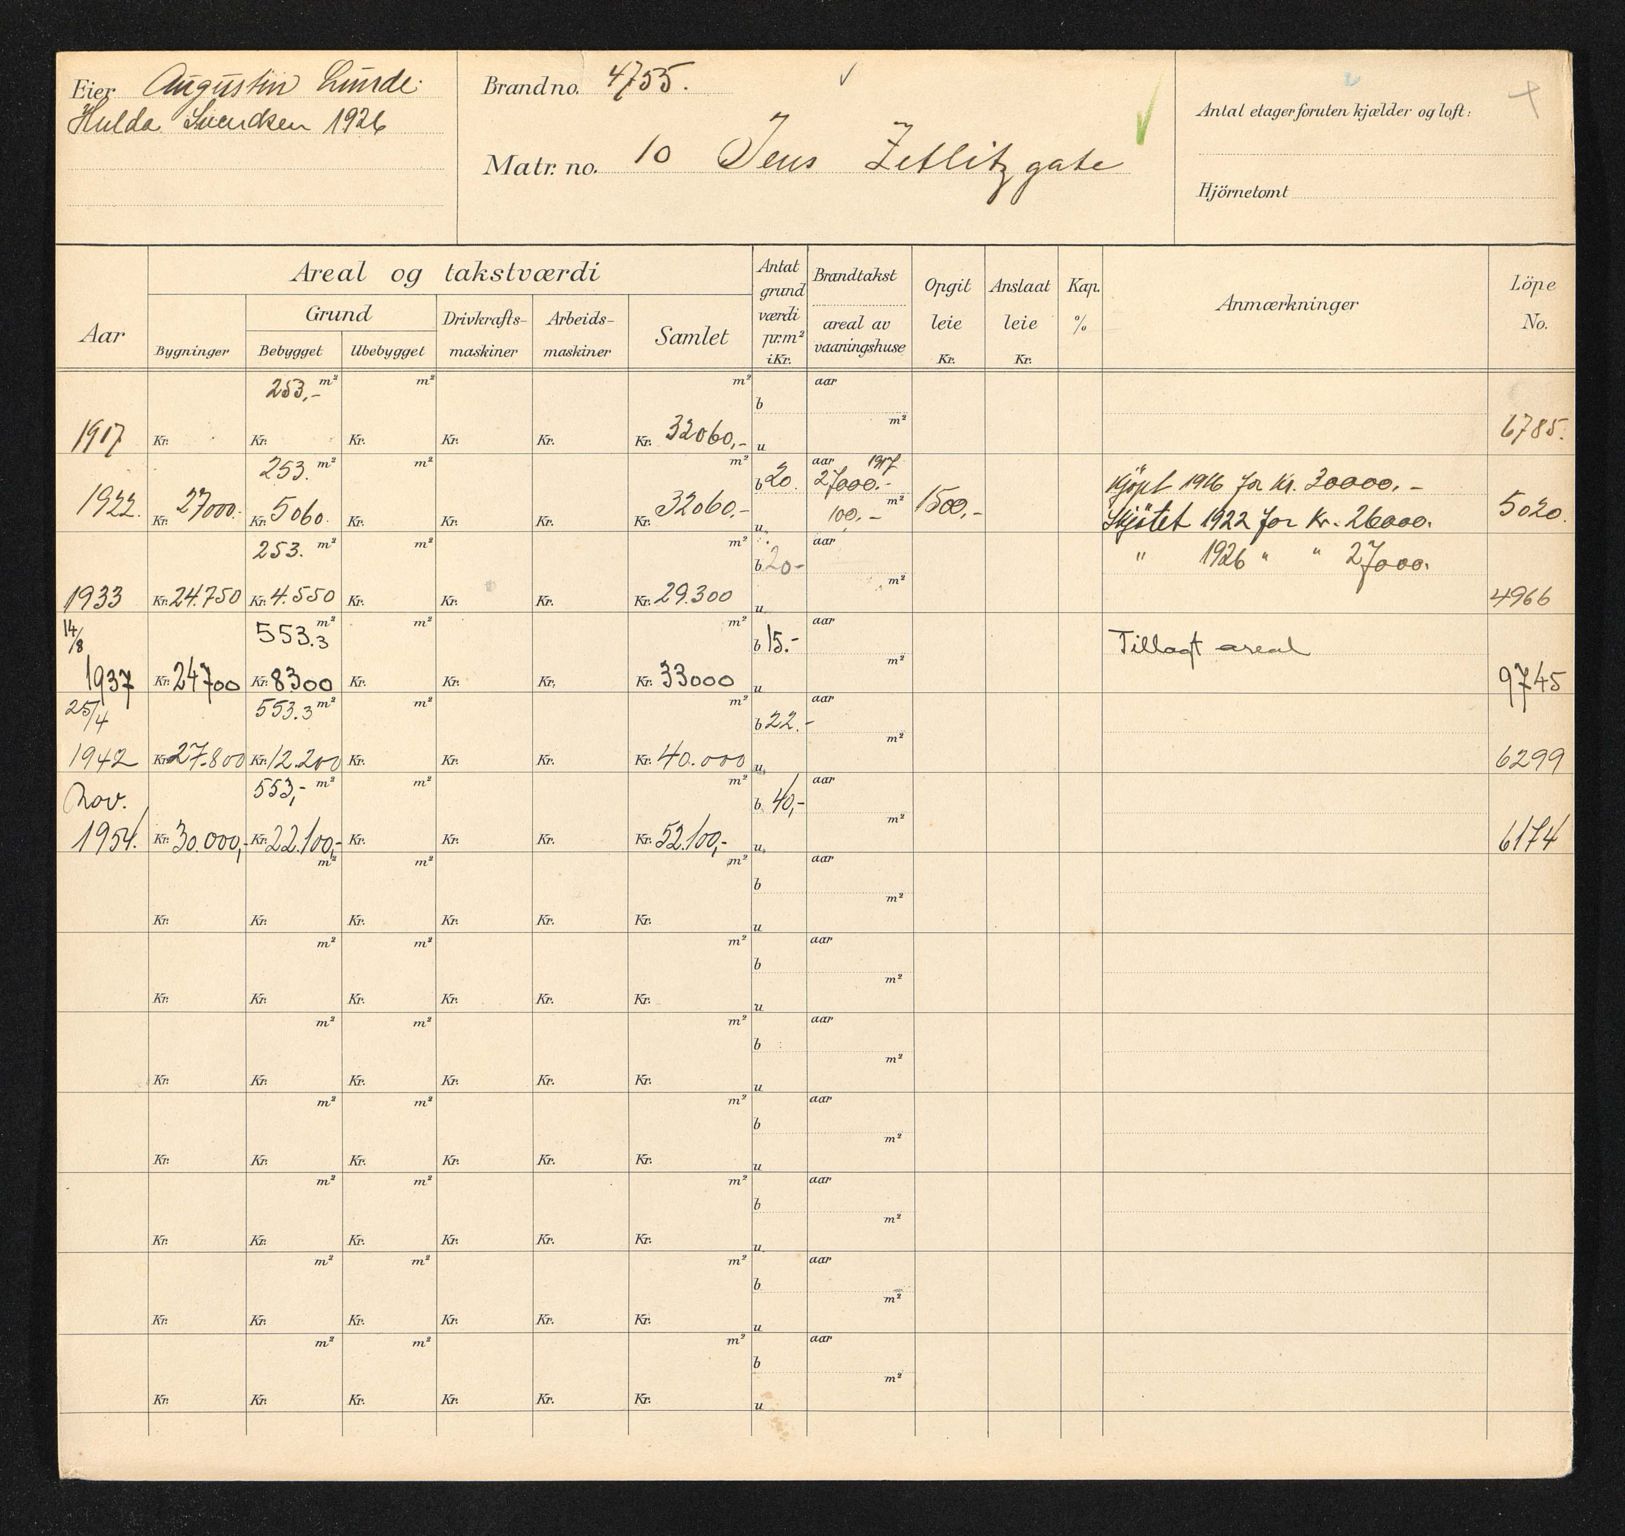 Eier Augustin Lunde.
Hulda Svendsen 1926
Brand no. 4755.
Matr. no. 10 Jens Zetlitzgate
Antal etager foruten kjælder og loft:
Hjörnetomt
Aar
Areal og takstværdi
Bygninger
Grund
Bebygget Ubebygget
Drivkrafts-maskiner
Arbeids-maskiner
Samlet
Antat grund værdi pr. m² i Kr.
Brandtakst
areal av vaaningshuse
Opgit leie Kr.
Anslaat leie Kr.
Kap. %
Anmærkninger
Löpe No.
253,- m² m² m² b aar
m²
1917 Kr. Kr. Kr. Kr. Kr. Kr. 32060,- u 6785.
253. m² m² m² b 20. aar 1917 27000.- Kjöpt 1916 for Kr. 30000.-
1922. Kr. 27000.- Kr. 5060. Kr. Kr. Kr. Kr. 32060.- u 100,- m² 1500,- Skjötet 1922 for Kr. 26000. 5020.
253. m² m² m² b 20- aar " 1926 " " 27000.
m²
1933 Kr. 24.750 Kr. 4.550 Kr. Kr. Kr. Kr. 29.300 u 4966
14/8 553.3 m² m² m² b 15.- aar Tillagt areal
m²
1937 Kr. 24700 Kr. 8300 Kr. Kr. Kr. Kr. 33000 u 9745
25/4 553.3 m² m² m² b 22.- aar
m²
1942 Kr. 27.800 Kr. 12.200 Kr. Kr. Kr. Kr. 40.000 u 6299
Nov. 553,- m² m² m² b 40,- aar
m²
1954. Kr. 30.000,- Kr. 22.100,- Kr. Kr. Kr. Kr. 52.100,- u 6174
m² m² m² b aar
m²
Kr. Kr. Kr. Kr. Kr. Kr. u
m² m² m² b aar
m²
Kr. Kr. Kr. Kr. Kr. Kr. u
m² m² m² b aar
m²
Kr. Kr. Kr. Kr. Kr. Kr. u
m² m² m² b aar
m²
Kr. Kr. Kr. Kr. Kr. Kr. u
m² m² m² b aar
m²
Kr. Kr. Kr. Kr. Kr. Kr. u
m² m² m² b aar
m²
Kr. Kr. Kr. Kr. Kr. Kr. u
m² m² m² b aar
m²
Kr. Kr. Kr. Kr. Kr. Kr. u